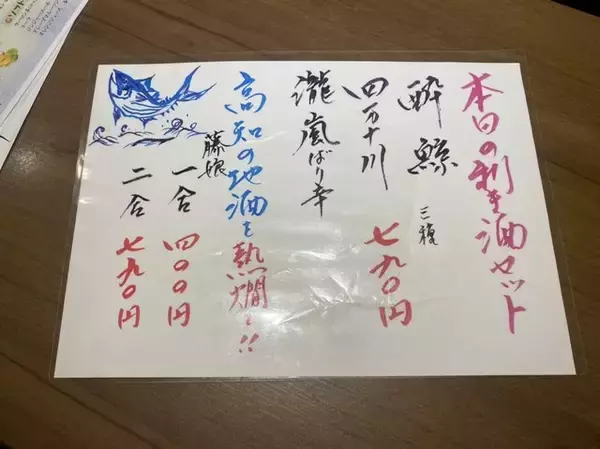 本日の利き酒セット
酔鯨 三種
四万十川 七九〇円
瀧嵐ばり辛
高知の地酒を熱燗で!!
藤娘
一合 四〇〇円
二合 七九〇円